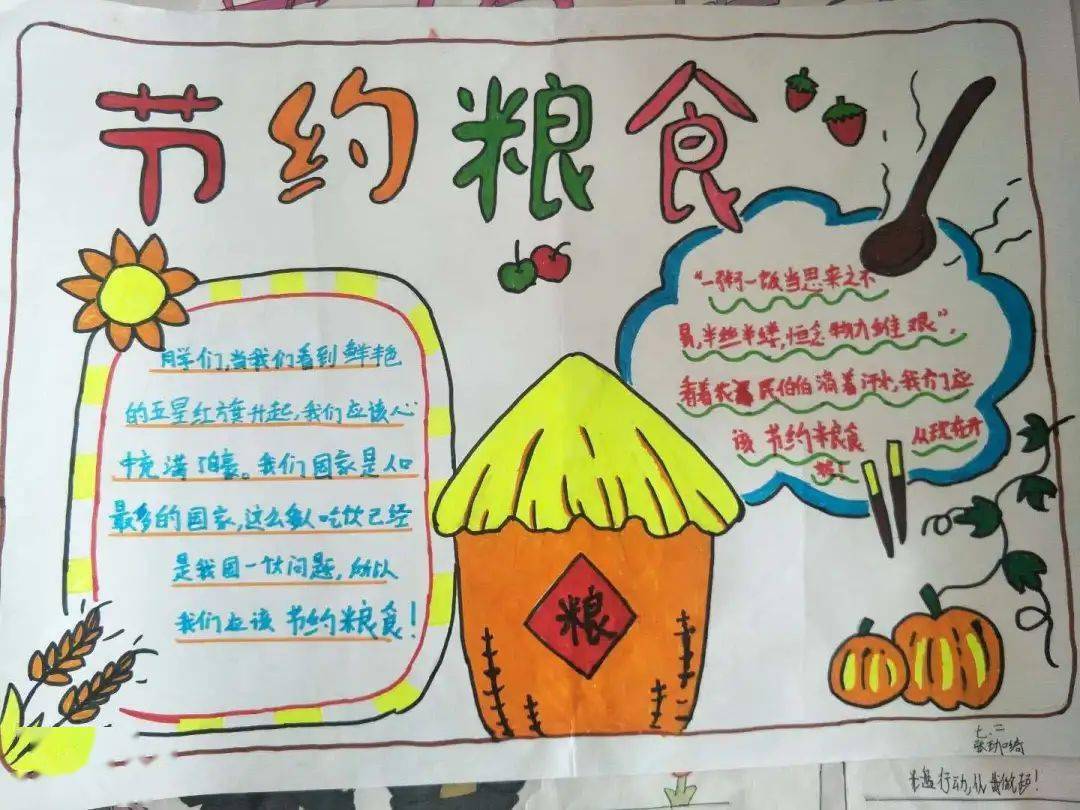 节约粮食
同学们,当我们看到鲜艳
的五星红旗升起,我们应该心
中充满自豪。我们国家是人口
最多的国家,这么多人吃饭已经
是我国一大问题,所以
我们应该节约粮食!
"一粥一饭当思来之不
易,半丝半缕,恒念物力维艰",
看着农民伯伯滴着汗水,我们应
该节约粮食 从现在开
始!
粮
七.二
张珈绮
光盘行动,从我做起!